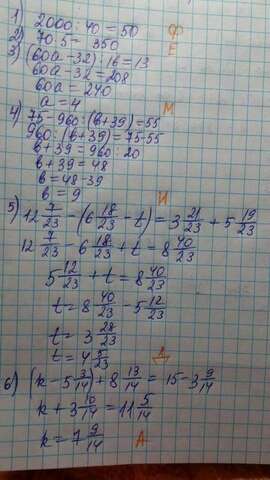 1) 2000 : 40 = 50 Ф
2) 70·5 = 350 Е
3) (60a - 32) : 16 = 13
60a - 32 = 208
60a = 240
a = 4 М
4) 75 - 960 : (в + 39) = 55
960 : (в + 39) = 75 - 55
в + 39 = 960 : 20
в + 39 = 48
в = 48 - 39
в = 9 И
5) 12 7/23 - (6 18/23 - t) = 3 21/23 + 5 19/23
12 7/23 - 6 18/23 + t = 8 40/23
5 12/23 + t = 8 40/23
t = 8 40/23 - 5 12/23
t = 3 28/23
t = 4 5/23 Д
6) (k - 5 3/14) + 8 13/14 = 15 - 3 9/14
k + 3 10/14 = 11 5/14
k = 7 9/14 А